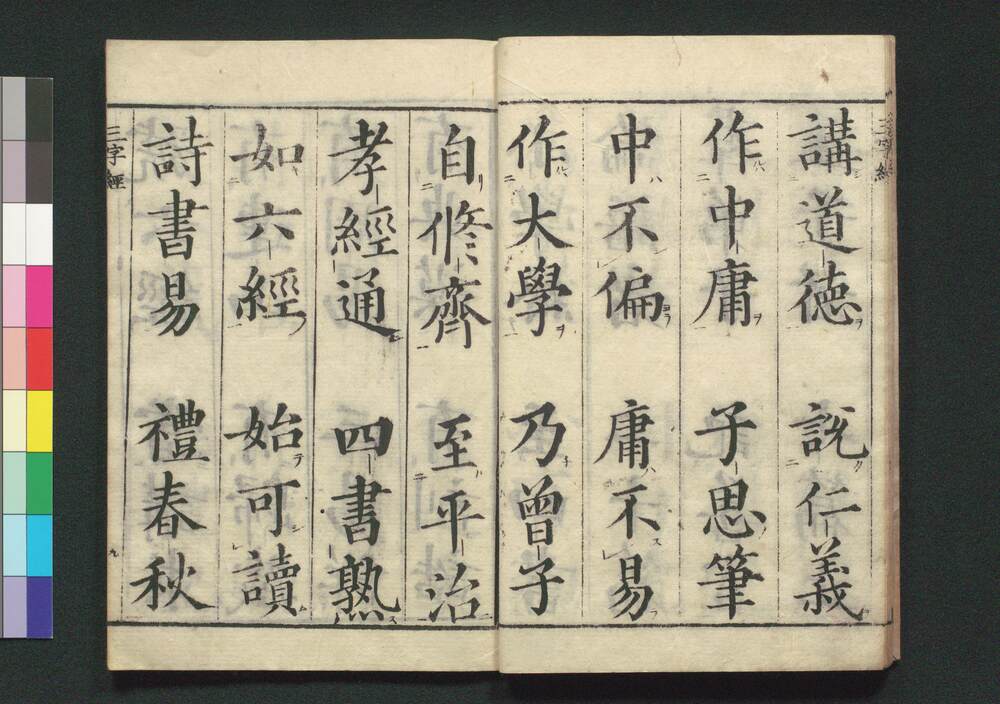 講道德 說仁義
作中庸 子思筆
中不偏 庸不易
作大學 乃曾子
自修齊 至平治
孝經通 四書熟
如六經 始可讀
詩書易 禮春秋
三字經
九